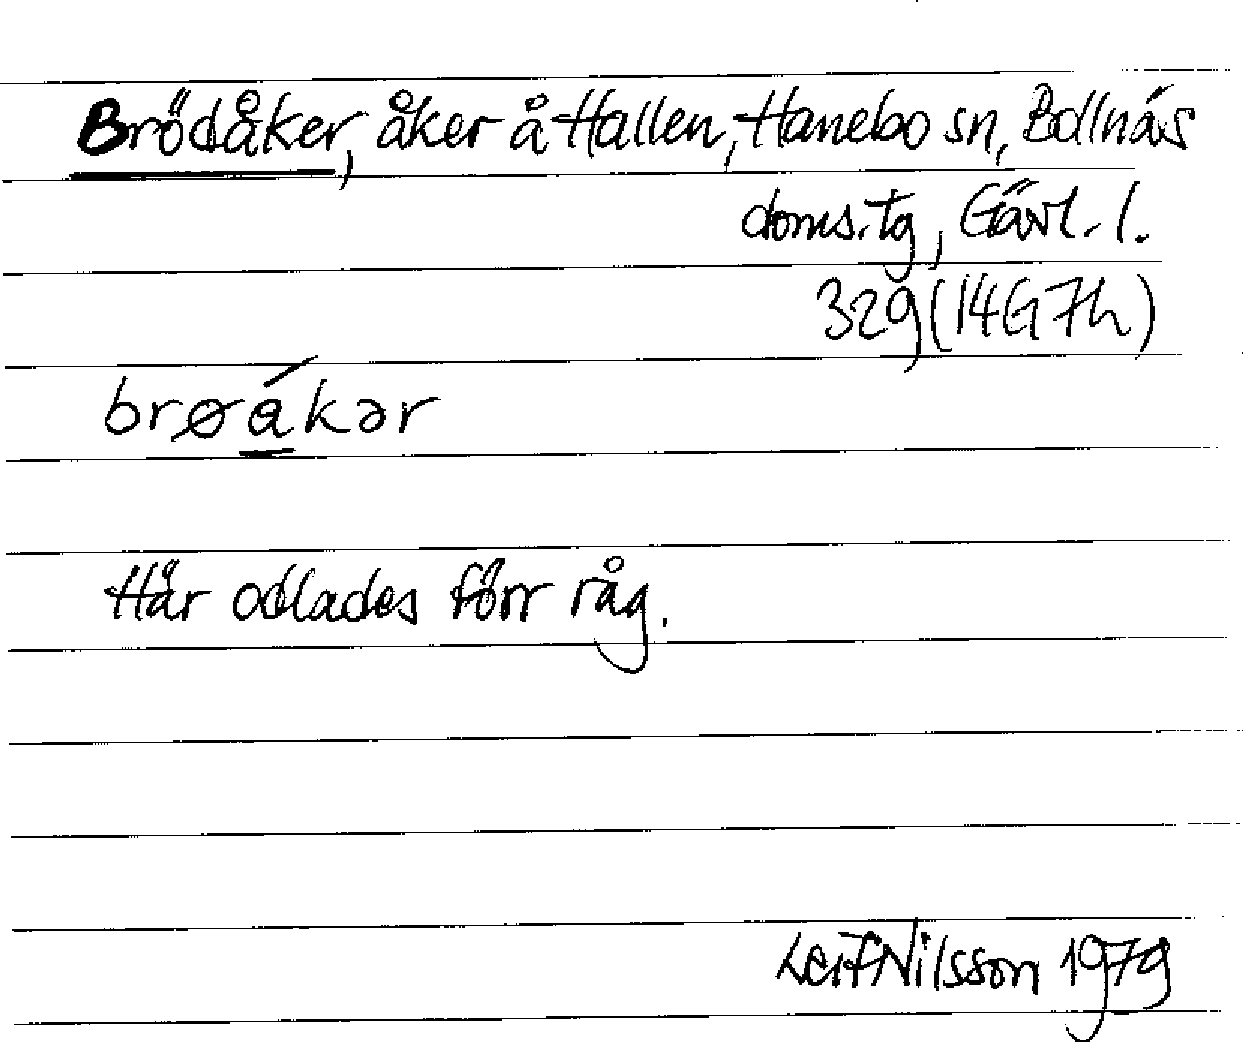 Brödåker, åker å Hallen, Hanebo sn, Bollnäs
doms.tg, Gävl. l.
329 (14G7h)
brøákər
Här odlades förr råg.
Leif Nilsson 1979